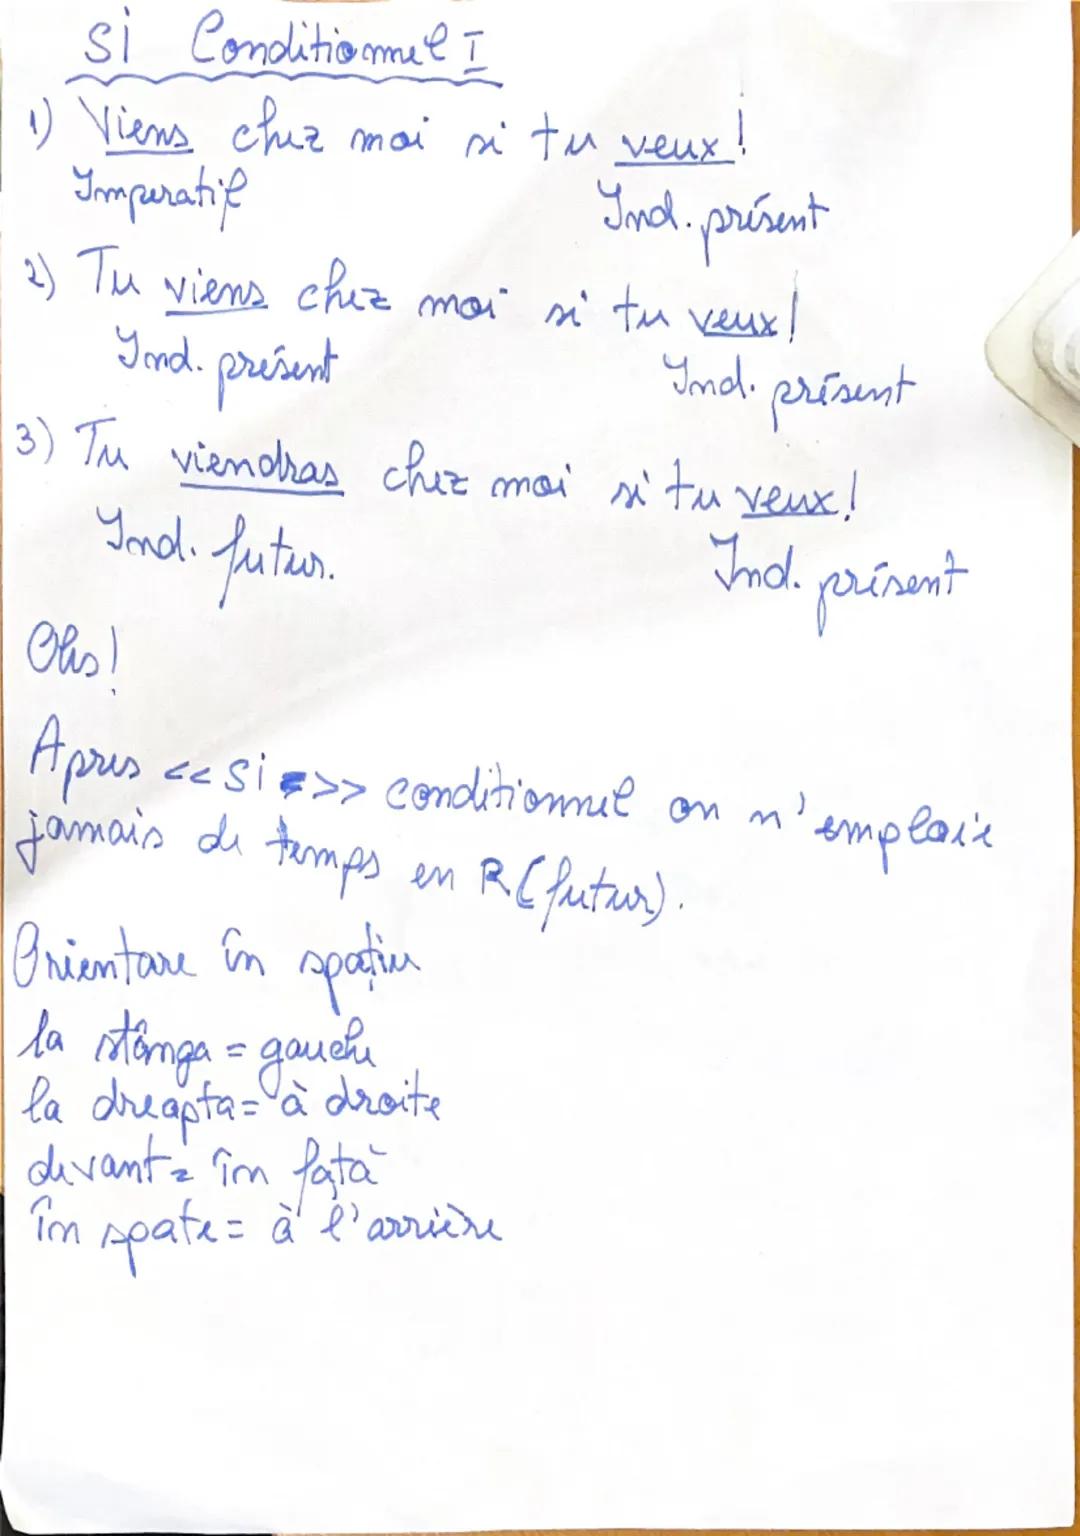 Si Conditionnel I
1) Viens chez moi si tu veux!
Imperatif Ind. présent
2) Tu viens chez moi si tu veux!
Ind. présent Ind. présent
3) Tu viendras chez moi si tu veux!
Ind. futur. Ind. présent
Obs!
Apres <<si>> conditionnel on n'emploie
jamais de temps en R(futur).
Orientare în spațiu
la stânga = gauche
la dreapta = à droite
devant = în față
în spate = à l'arrière